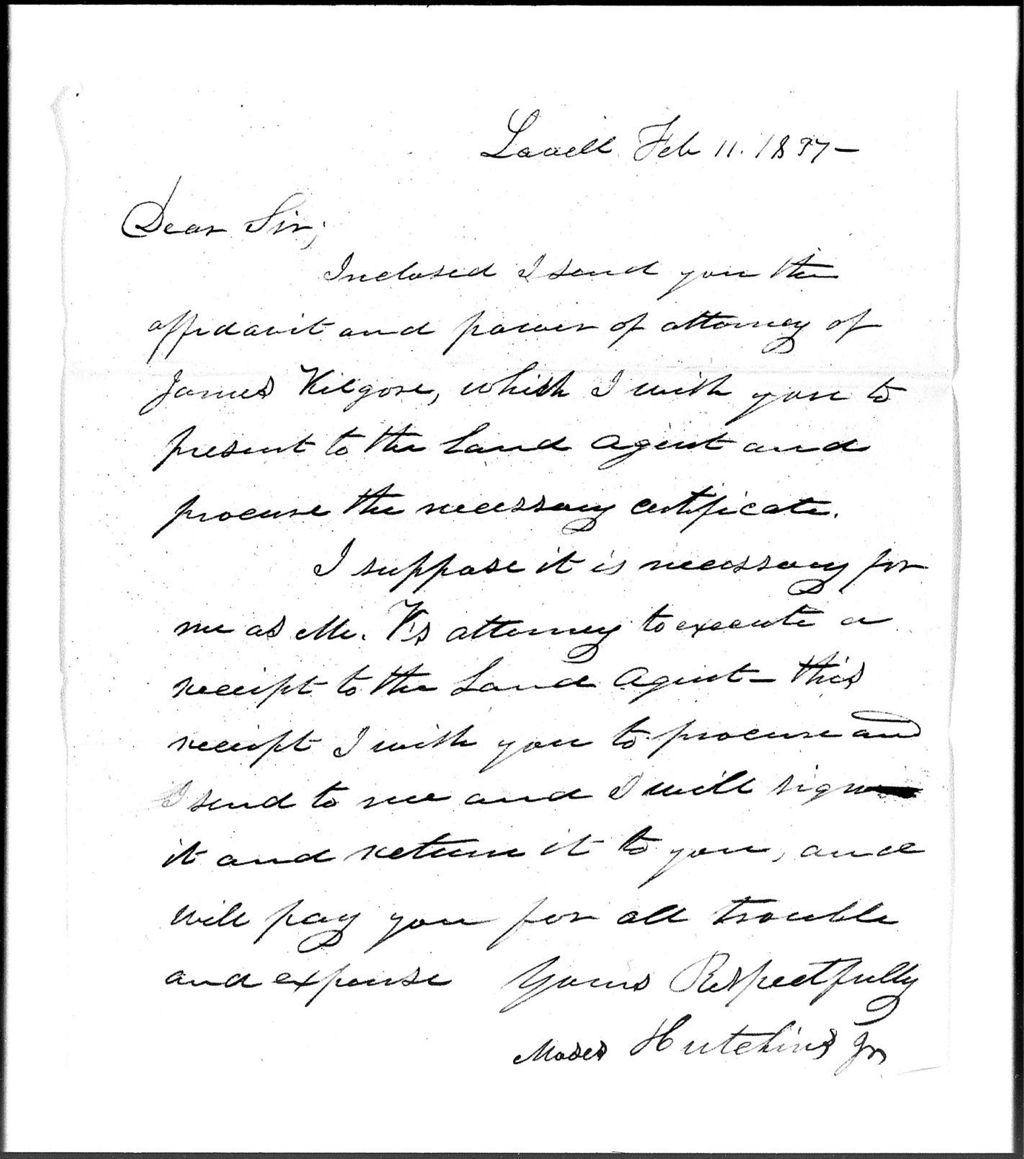 Lovell Feb 11. 1837-
Dear Sir;
Inclosed I send you the
affidavit and power of attorney of
James Kilgore, which I wish you to
present to the Land Agent and
procure the necessary certificate.
I suppose it is necessary for
me as Mr. K's attorney to execute a
receipt to the Land Agent - this
receipt I wish you to procure and
I send to me and I will sign
it and return it to you, and
will pay you for all trouble
and expense Yours Respectfully
Moses Hutchins Jr